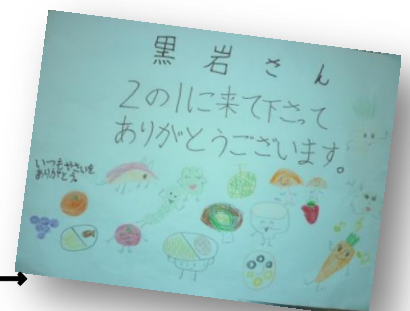 黒岩さん
2の1に来て下さって
ありがとうございます。
いつもやさいを
ありがとう